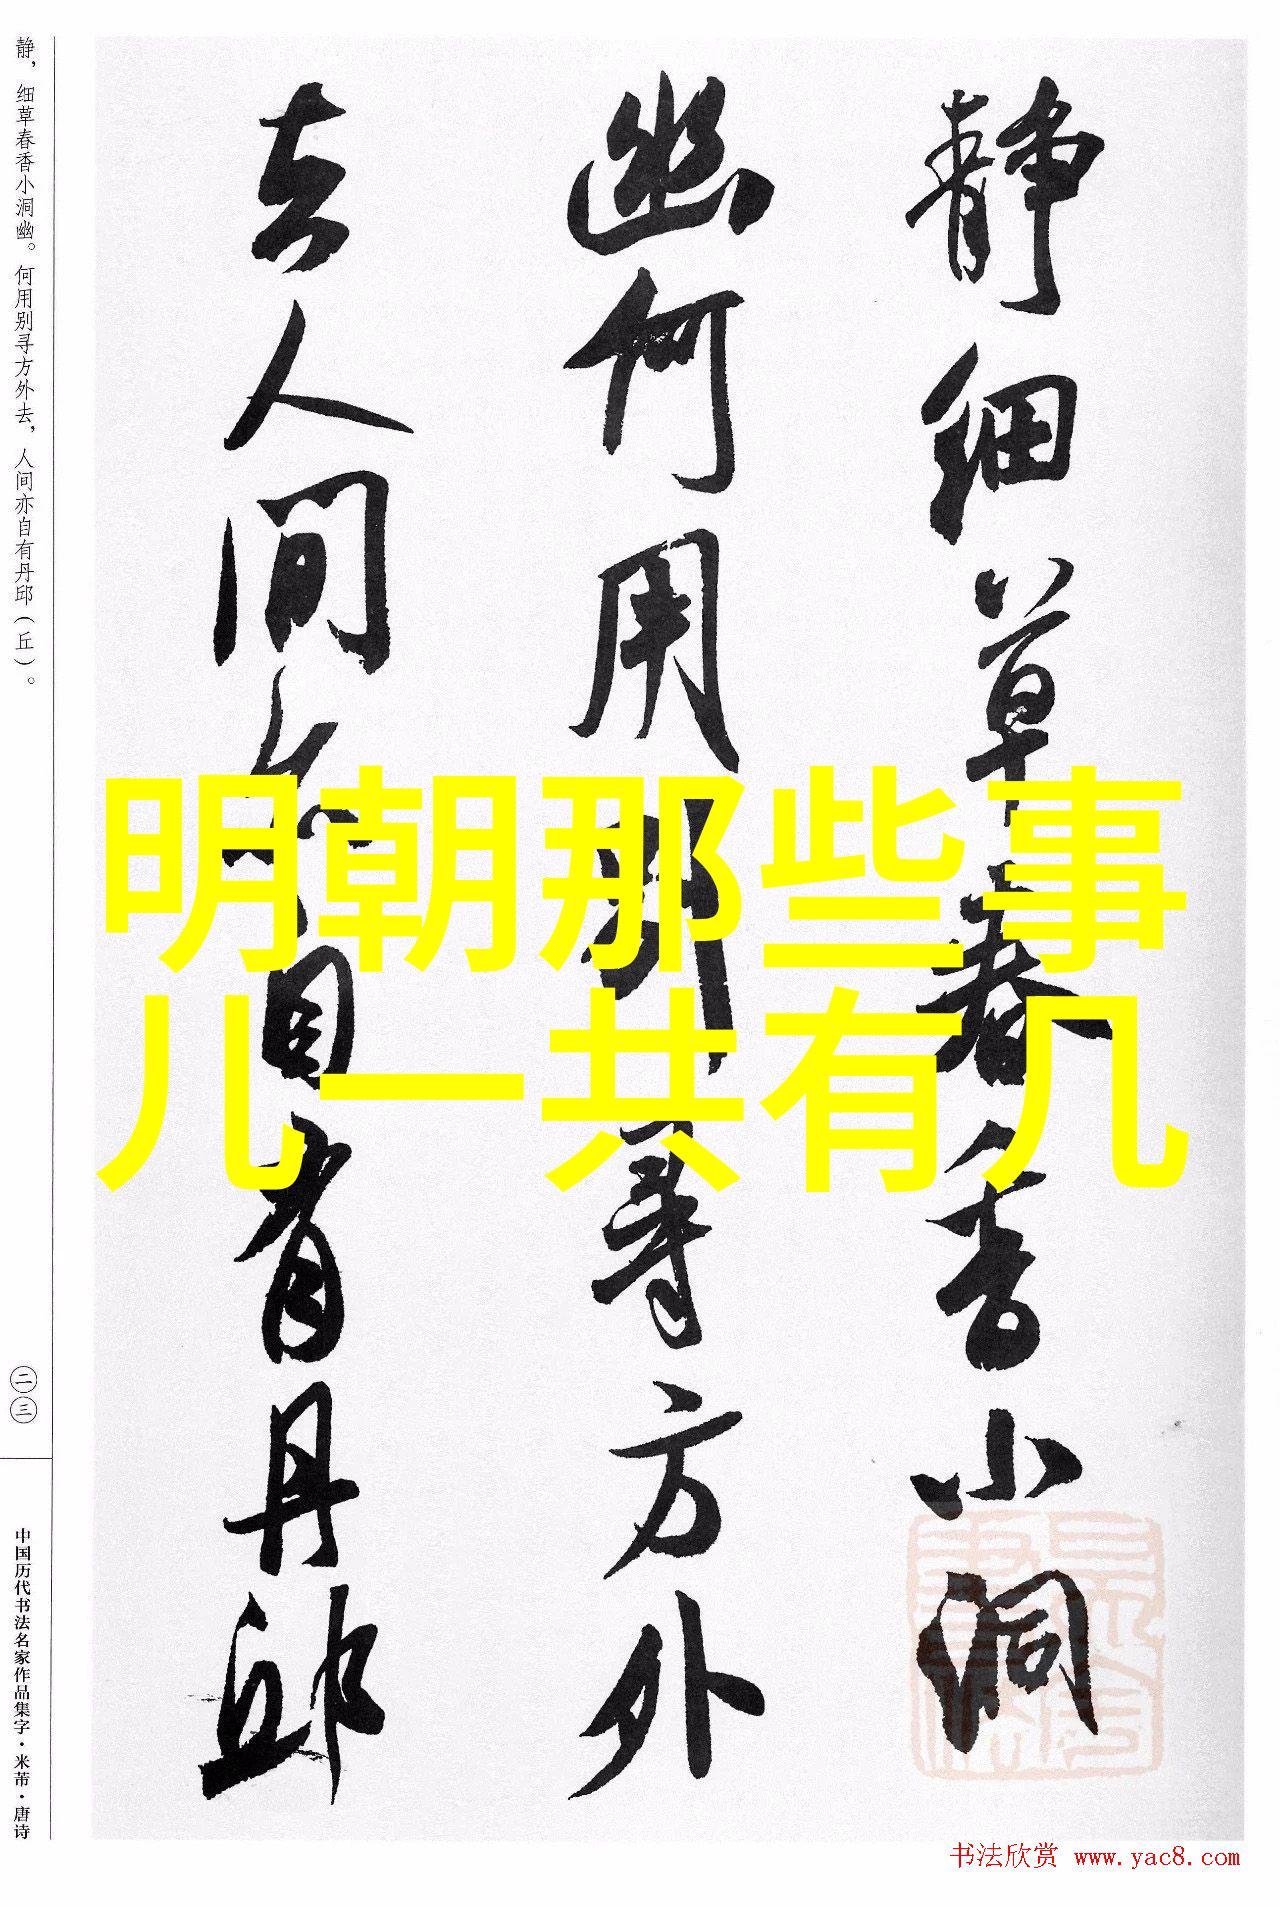 静，细草春香小洞幽。何用别寻方外去，人间亦自有丹邱（丘）。
二三
中国历代书法名家作品集字·米芾·唐诗
静细草春香小洞
幽何用别寻方外
去人间亦自有丹邱
明朝那些事
儿一共有几
书法欣赏 www.yac8.com